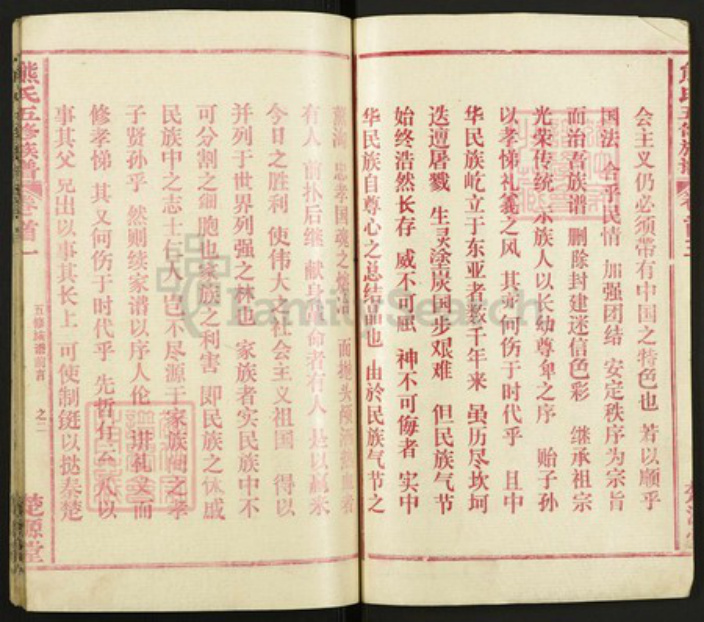 会主义仍必须带有中国之特色也 若以顺乎
国法 合乎民情 加强团结 安定秩序为宗旨
而治吾族谱 删除封建迷信色彩 继承祖宗
光荣传统 示族人以长幼尊卑之序 贻子孙
以孝悌礼义之风 其亦何伤于时代乎 且中
华民族屹立于东亚者数千年来 虽历尽坎坷
迭遭屠戮 生灵塗炭国步艰难 但民族气节
始终浩然长存 威不可屈 神不可侮者 实中
华民族自尊心之总结晶也 由於民族气节之
忠孝国魂之 而抛头颅洒热血者
有人 前扑后继 献身革命者有人 是以赢来
今日之胜利 使伟大之社会主义祖国 得以
并列于世界列强之林也 家族者实民族中不
可分割之细胞也家族之利害 即民族之休戚
民族中之志士仁人 岂不尽源于家族间之孝
子贤孙乎 然则续家谱以序人伦 讲礼义而
修孝悌 其又何伤于时代乎 先哲有云 入以
事其父兄出以事其长上 可使制挺以挞秦楚
熊氏五修族谱 卷首一
五修族谱前言 之二
楚源堂